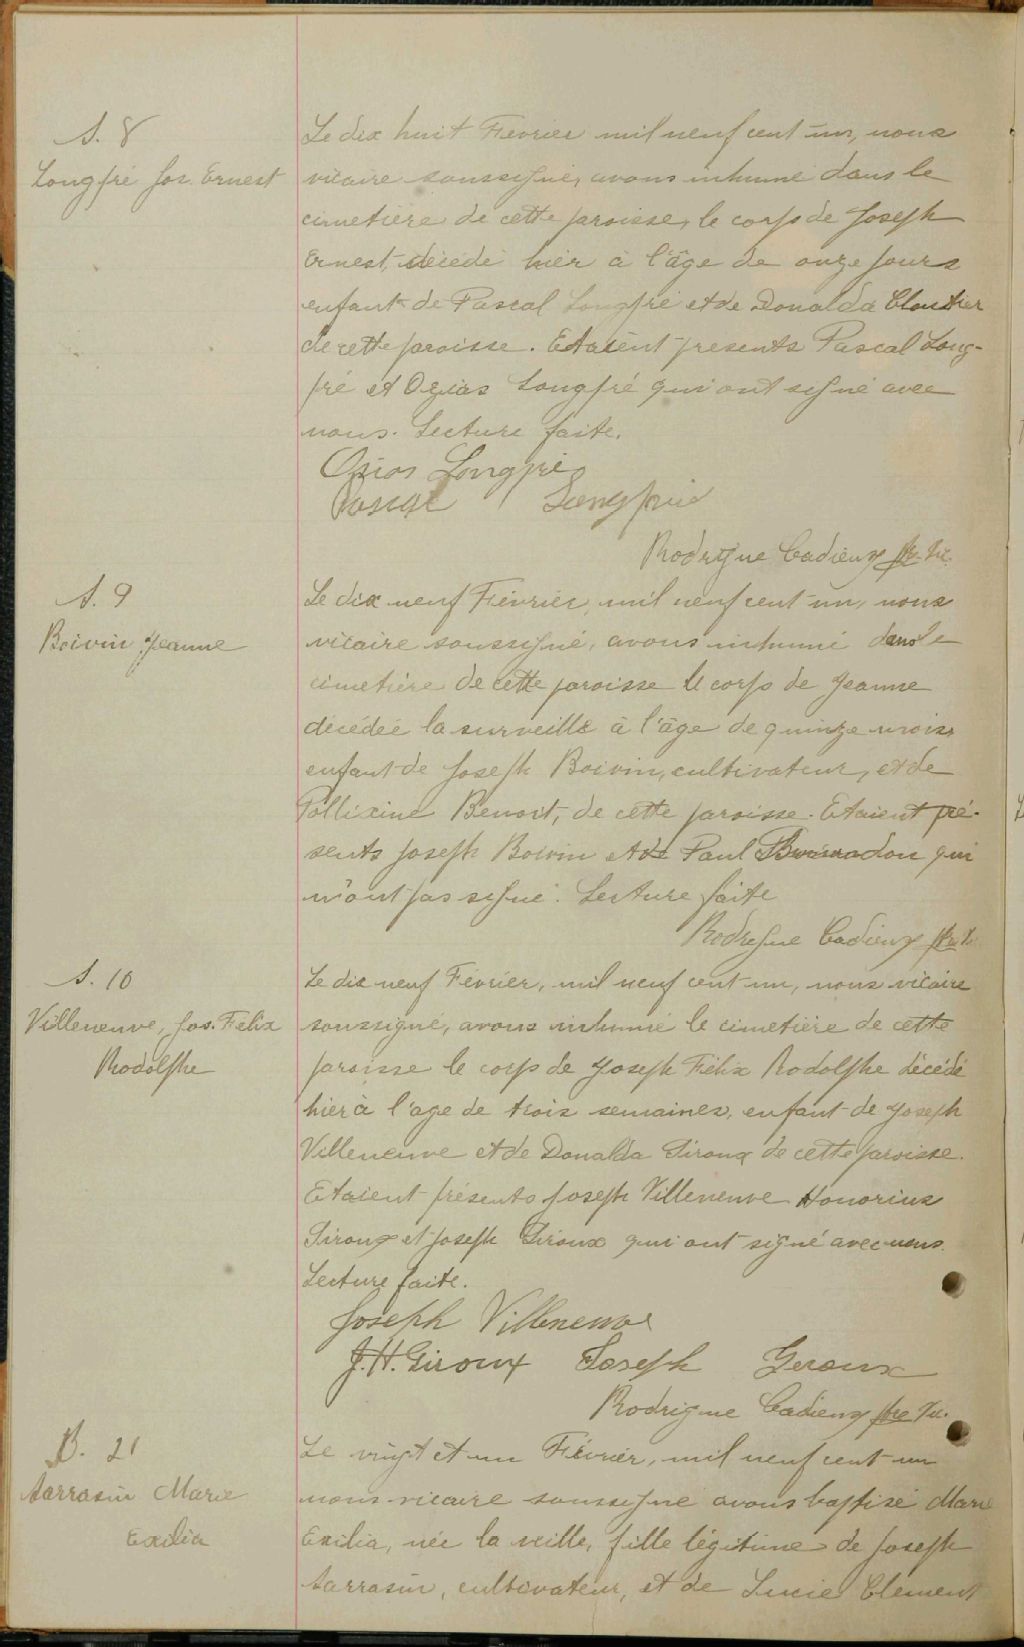 S. 8
Longpré Jos. Ernest
Le dix huit Fevrier mil neuf cent un, nous
vicaire soussigné, avons inhumé dans le
cimetière de cette paroisse, le corps de Joseph
Ernest, décédé hier à l'âge de onze jours
enfant de Pascal Longpré et de Donalda Cloutier
de cette paroisse. Etaient presents Pascal Long-
pré et Ozias Longpré qui ont signé avec
nous. Lecture faite.
Ozias Longpré
Pascal Longpré
Rodrigue Cadieux ptr. Vic.
S. 9
Boivin Jeanne
Le dix neuf Février, mil neuf cent un, nous
vicaire soussigné, avons inhumé dans le
cimetière de cette paroisse le corps de Jeanne
décédée la surveille à l'âge de quinze mois,
enfant de Joseph Boivin, cultivateur, et de
Pollixine Benoit, de cette paroisse. Etaient pré-
sents Joseph Boivin et de Paul qui
n'ont pas signé. Lecture faite
Rodrigue Cadieux ptre V.
S. 10
Villeneuve, Jos. Felix
Rodolphe
Le dix neuf Février, mil neuf cent un, nous vicaire
soussigné, avons inhumé le cimetière de cette
paroisse le corps de Joseph Félix Rodolphe décédé
hier à l'age de trois semaines, enfant de Joseph
Villeneuve et de Donalda Giroux de cette paroisse.
Etaient présents Joseph Villeneuve Honorius
Giroux et Joseph Giroux qui ont signé avec nous.
Lecture faite.
Joseph Villeneuve
J. H. Giroux Joseph Geroux
Rodrigue Cadieux ptre Vic.
B. 21
Sarrasin Marie
Exilia
Le vingt et un Février, mil neuf cent un
nous vicaire soussigné avons baptisé Marie
Exilia, née la veille, fille légitime de Joseph
Sarrasin, cultivateur, et de Lucie Clement